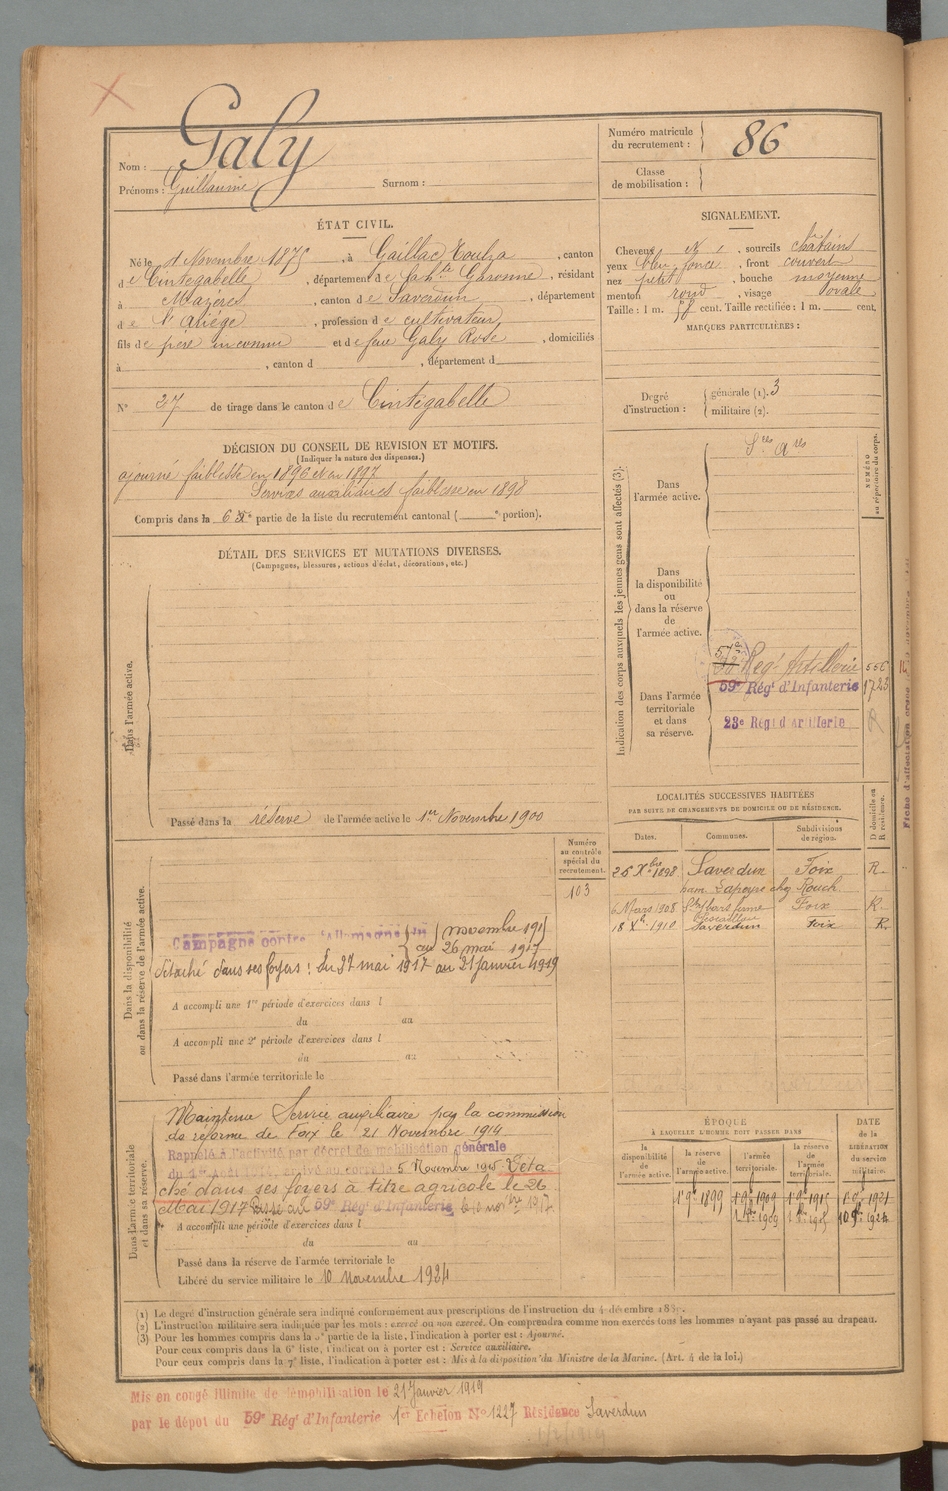 Nom : Galy
Prénoms : Guillaume Surnom :
Numéro matricule
du recrutement : 86
Classe
de mobilisation :
ÉTAT CIVIL.
Né le 4 Novembre 1875, à Gaillac Toulza, canton
de Cintegabelle, département de la Hte Garonne, résidant
à Mazères, canton de Saverdun, département
de l'Ariége, profession de cultivateur
fils de père inconnu et de feue Galy Rose, domiciliés
à , canton d , département d
N° 27 de tirage dans le canton de Cintegabelle
SIGNALEMENT.
Cheveux N , sourcils chatains
yeux bleu foncé , front couvert
nez petit , bouche moyenne
menton rond , visage ovale
Taille : 1 m. 58 cent. Taille rectifiée : 1 m. cent.
MARQUES PARTICULIÈRES :
Degré
d'instruction :
générale (1). 3
militaire (2).
DÉCISION DU CONSEIL DE REVISION ET MOTIFS.
(Indiquer la nature des dispenses.)
ajourné faiblesse en 1896 et en 1897
Services auxiliaires faiblesse en 1898
Compris dans la 6e partie de la liste du recrutement cantonal ( e portion).
DÉTAIL DES SERVICES ET MUTATIONS DIVERSES.
(Campagnes, blessures, actions d'éclat, décorations, etc.)
Dans l'armée active.
Passé dans la réserve de l'armée active le 1er Novembre 1900
Indication des corps auxquels les jeunes gens sont affectés (3).
NUMÉRO
au répertoire du corps.
Dans
l'armée active.
Sces Ares
Dans
la disponibilité
ou
dans la réserve
de
l'armée active.
Dans l'armée
territoriale
et dans
sa réserve.
57e Regt Artillerie 556
59e Régt d'Infanterie 1723
23e Régt d'Artillerie
LOCALITÉS SUCCESSIVES HABITÉES
PAR SUITE DE CHANGEMENTS DE DOMICILE OU DE RÉSIDENCE.
D domicile ou
R résidence.
Dates. Communes. Subdivisions
de région.
25 Xbre 1898 Saverdun Foix R.
ham. Lapeyre chez Rouch
6 Mars 1908 Foix R.
18 Xbre 1910 Saverdun Foix R.
Numéro
au contrôle
spécial du
recrutement.
103
Dans la disponibilité
ou dans la réserve de l'armée active.
Campagne contre l'Allemagne du 5 novembre 1915
au 26 mai 1917
détaché dans ses foyers : du 27 mai 1917 au 21 janvier 1919
A accompli une 1re période d'exercices dans l
du au
A accompli une 2e période d'exercices dans l
du au
Passé dans l'armée territoriale le
Dans l'armée territoriale
et dans sa réserve.
Maintenu Service auxiliaire par la commission
de réforme de Foix le 21 Novembre 1914
Rappelé à l'activité par décret de mobilisation générale
du 1er Août 1914, arrivé au corps le 5 Novembre 1915. Déta
ché dans ses foyers à titre agricole le 26
Mai 1917 Passé au 59e Régt d'Infanterie le 1 nov. bre 1917
A accompli une période d'exercices dans l
du au
Passé dans la réserve de l'armée territoriale le
Libéré du service militaire le 10 Novembre 1924
ÉPOQUE
À LAQUELLE L'HOMME DOIT PASSER DANS
DATE
de la
LIBÉRATION
du service
militaire.
la
disponibilité
de
l'armée active.
la réserve
de
l'armée active.
l'armée
territoriale.
la réserve
de
l'armée
territoriale.
1er 9bre 1899 1er 9bre 1909 1er 9bre 1915 1er 9bre 1921
10 9bre 1924
(1) Le degré d'instruction générale sera indiqué conformément aux prescriptions de l'instruction du 4 décembre 1889.
(2) L'instruction militaire sera indiquée par les mots : exercé ou non exercé. On comprendra comme non exercés tous les hommes n'ayant pas passé au drapeau.
(3) Pour les hommes compris dans la 5e partie de la liste, l'indication à porter est : Ajourné.
Pour ceux compris dans la 6e liste, l'indication à porter est : Service auxiliaire.
Pour ceux compris dans la 7e liste, l'indication à porter est : Mis à la disposition du Ministre de la Marine. (Art. 4 de la loi.)
Mis en congé illimité de démobilisation le 21 Janvier 1919
par le dépôt du 59e Régt d'Infanterie 1er Echelon N° 1227 Résidence Saverdun